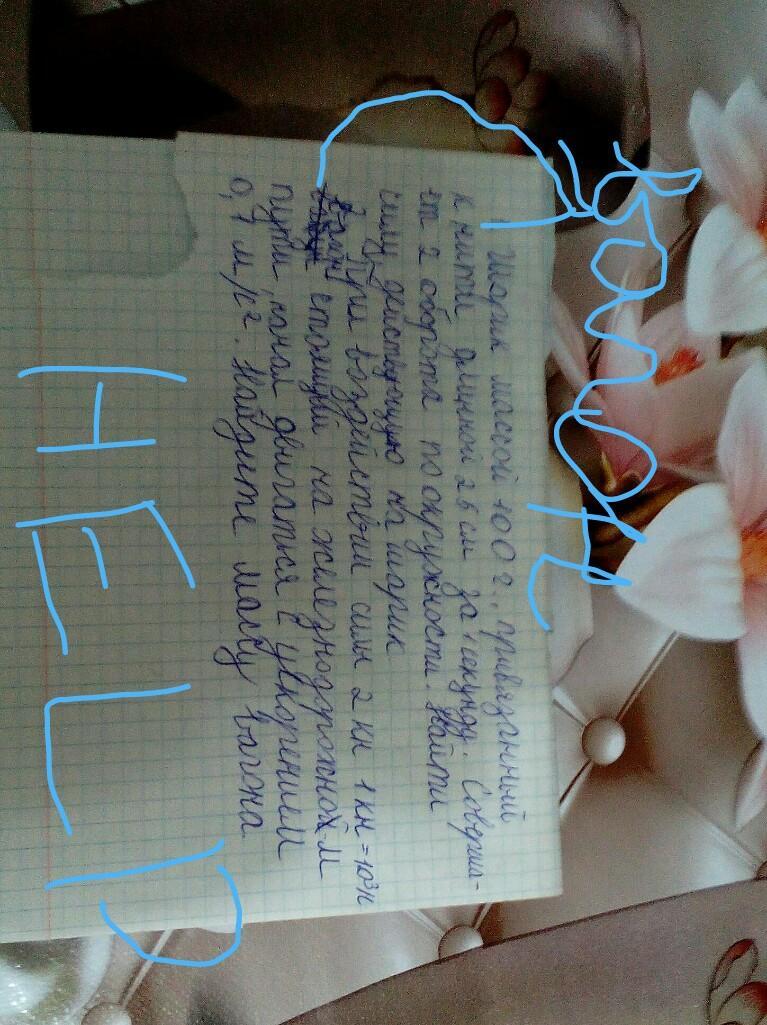 Шарик массой 100 г., привязанный
к нити длинной 25 см за 1 секунду. Соверша-
ет 2 оборота по окружности. Найти
силу действующую на шарик
При воздействии силы 2 кн 1кн = 10³н
стоящий на железнодорожной м
пути, начал двигаться с ускорением
0,1 м/с². Найдите массу вагона
HELP